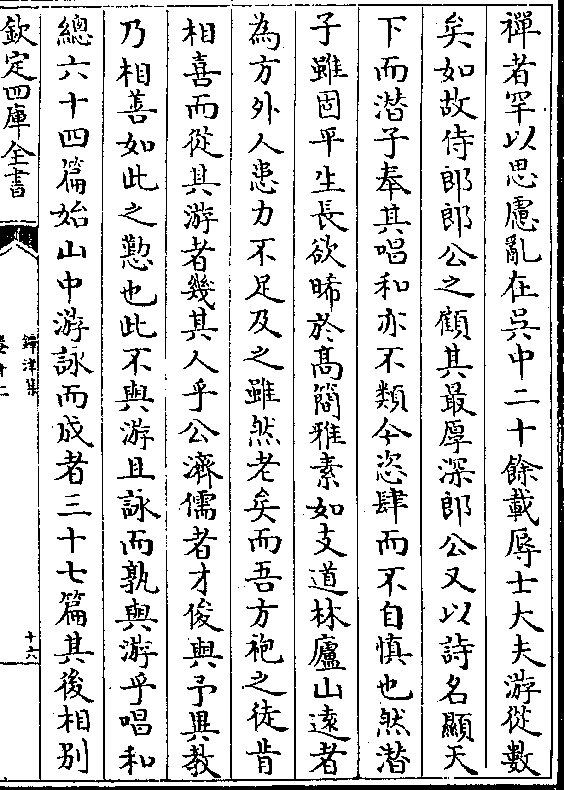 禪者罕以思慮亂在吳中二十餘載辱士大夫游從數
矣如故侍郎郎公之顧其最厚深郎公又以詩名顯天
下而潛子奉其唱和亦不類今恣肆而不自慎也然潛
子雖固平生長欲晞於髙簡雅素如支道林廬山遠者
為方外人患力不足及之雖然老矣而吾方袍之徒肯
相喜而從其游者幾其人乎公濟儒者才俊與予異教
乃相善如此之懃也此不與游且詠而孰與游乎唱和
總六十四篇始山中游詠而成者三十七篇其後相别
欽定四庫全書
鐔津集
卷十二
十六